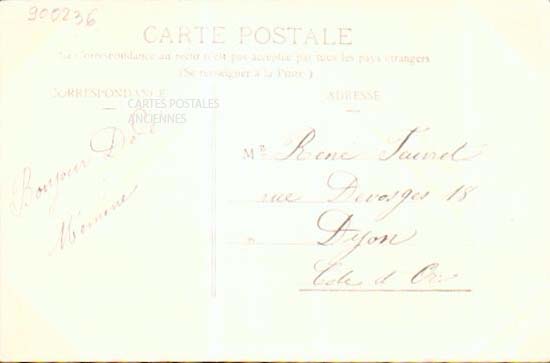 900236
CARTE POSTALE
La Correspondance au recto n'est pas acceptée par tous les pays étrangers
(Se renseigner à la Poste.)
CORRESPONDANCE
ADRESSE
CARTES POSTALES
ANCIENNES
Bonjour
Mr René
rue Devosges 18
à Dyon
Côte d'Or